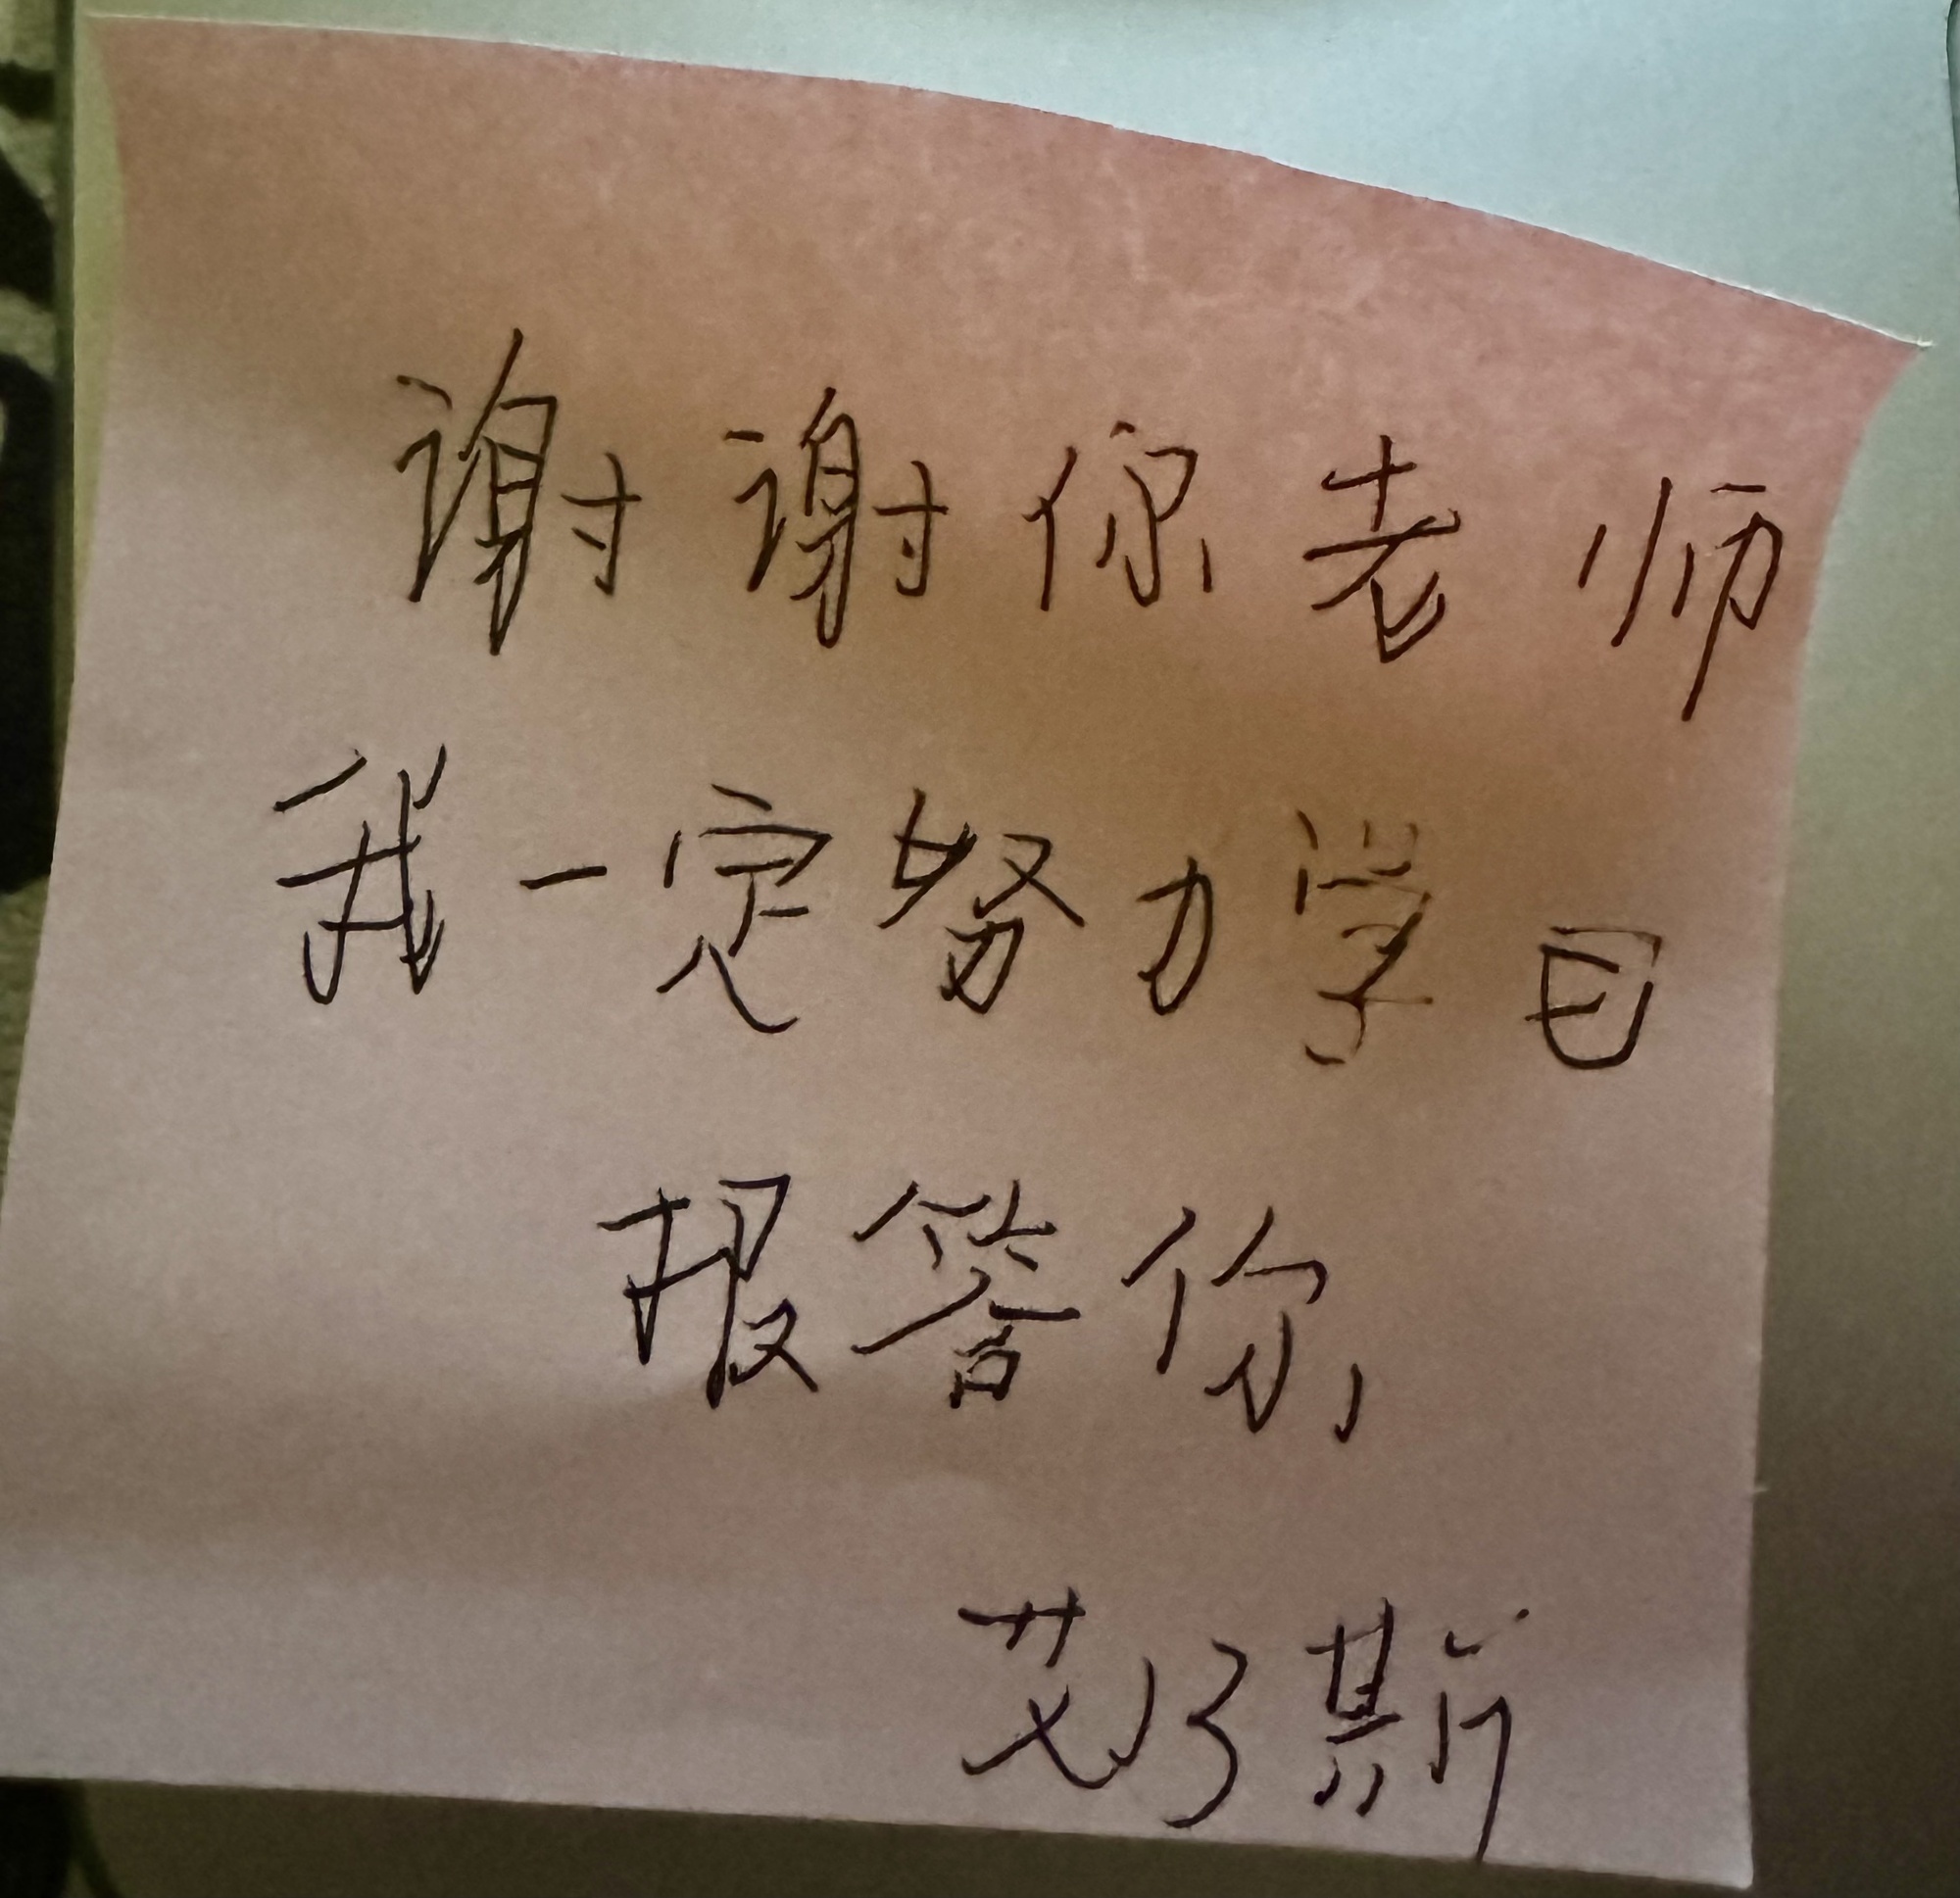 谢谢你老师
我一定努力学习
报答你
艾乃斯